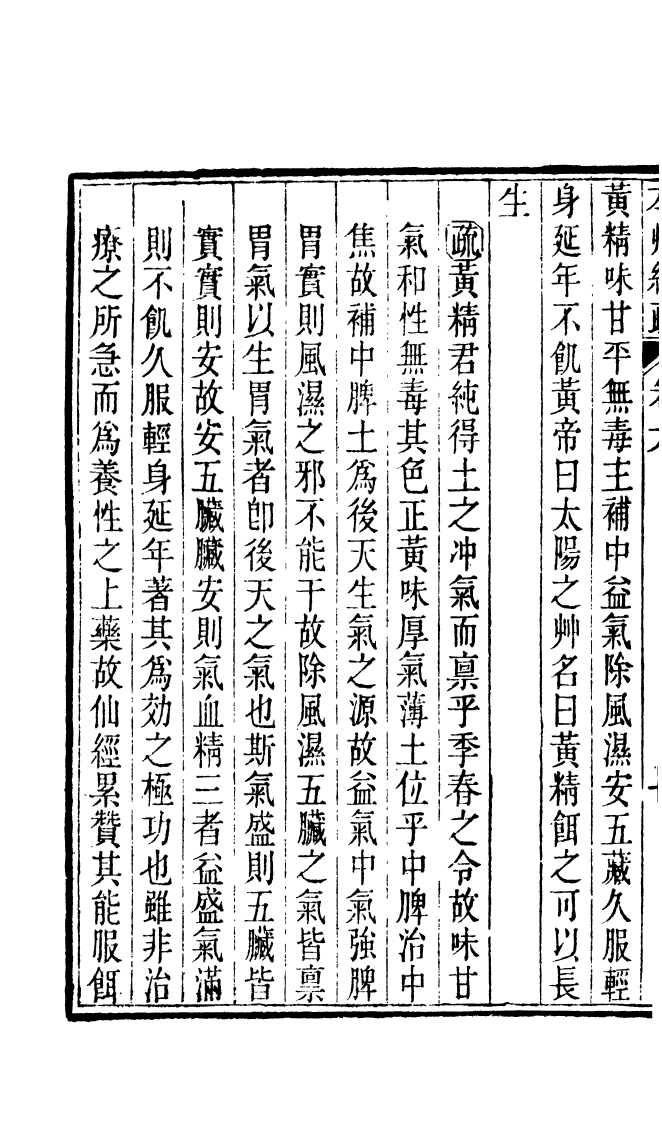 黃精味甘平無毒主補中益氣除風濕安五藏久服輕
身延年不飢黃帝曰太陽之艸名曰黃精餌之可以長
生
疏黃精君純得土之冲氣而禀乎季春之令故味甘
氣和性無毒其色正黃味厚氣薄土位乎中脾治中
焦故補中脾土爲後天生氣之源故益氣中氣強脾
胃實則風濕之邪不能干故除風濕五臟之氣皆禀
胃氣以生胃氣者卽後天之氣也斯氣盛則五臟皆
實實則安故安五臟臟安則氣血精三者益盛氣滿
則不飢久服輕身延年著其爲効之極功也雖非治
療之所急而爲養性之上藥故仙經累贊其能服餌